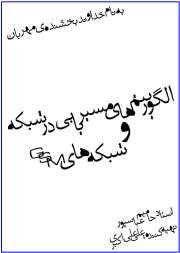 به نام خداوند بخشنده‌ی مهربان
الگوریتم های مسیریابی در شبکه
و
شبکه های GSM
استاد:
تهیه کننده: علی اکبری